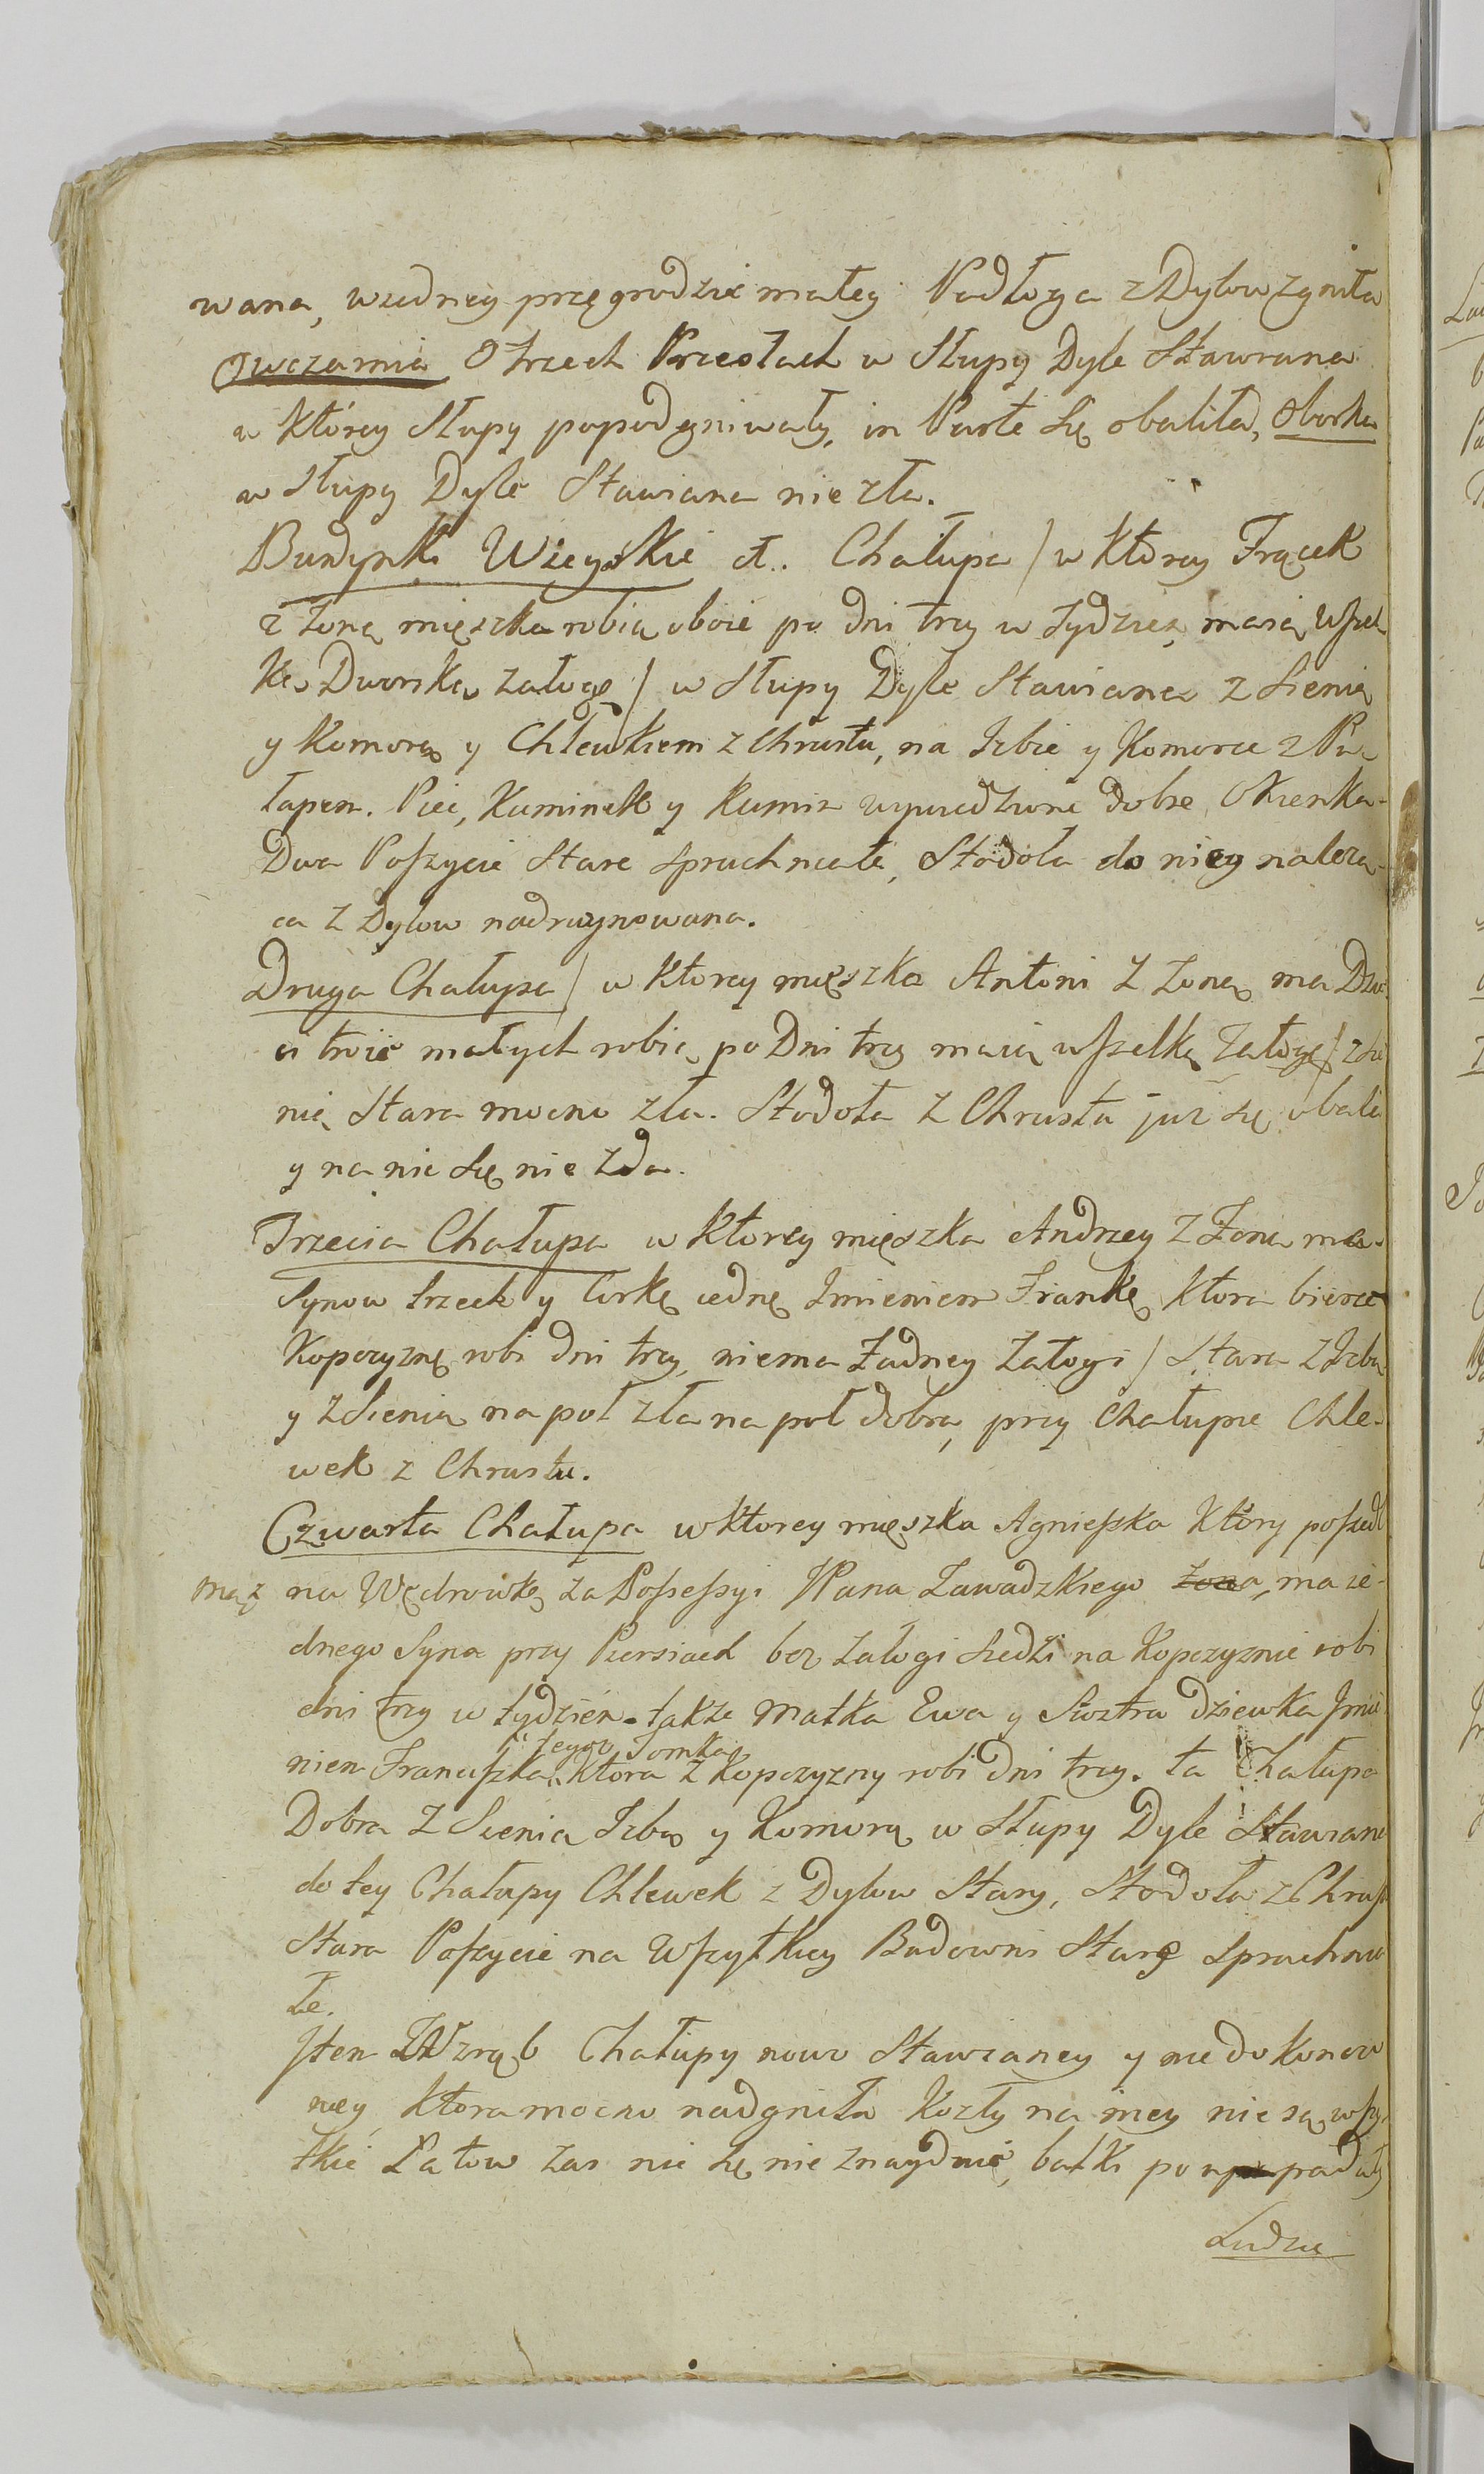 wana, w iedney przęgrodzie małey Podłoga z Dylow zgniła
Owczarnia O trzech Przęsłach w Słupy Dyle Stawiana
w ktorey Słupy popodgniwały, in Parte się obaliła, Oborka
w Słupy Dyle Stawiana nie zła.
Budynki Wieyskie A. Chałupa / w ktorey Frącek
z żoną mięszka robią oboie po dni trzy w tydzień maią wszel
ką Dworską załogę / w Słupy Dyle Stawiana z Sienią
y Komorą y Chlewkiem z Chrustu, na Izbie y Komorze z Pu
łapem. Piec, Kuminek y Kumin wywiedzione dobre, Okienka
Dwa Poszycie Stare spruchniałe, Stodoła do niey należą
ca z Dylow nadruynowana.
Druga Chałupa / w ktorey mięszka Antoni z żoną ma Dzie
ci troie małych robią po Dni trzy maią wszelką załogę / z Sie
nią Stara mocno zła. Stodoła z Chrustu już się obali
y na nic się nie zda.
Trzecia Chałupa w ktorey mięszka Andrzey z żoną ma
Synow trzech y Corkę iednę Imieniem Frankę ktora bierze
Kopczyznę robi dni trzy, niema żadney załogi / Stara z Izbą
y z Sienią na pol zła na pol dobra, przy Chałupie Chle-
wek z Chrustu.
Czwarta Chałupa w ktorey mięszka Agnieszka Ktory poszedł
mąż na Wędrowkę za Possessyi JPana Zawadzkiego żona, ma ie-
dnego Syna przy Piersiach bez załogi siedzi na Kopczyznie robi
dni trzy w tydzień. także Matka Ewa y Siostra dziewka Imie
tegoż Tomka
niem Franciszka ktora z Kopczyzny robi dni trzy. ta Chałupa
Dobra z Sienią Izbą y Komorą w Słupy Dyle Stawiana
do tey Chałupy Chlewek z Dylow Stary, Stodoła z Chrust
Stara Poszycie na Wszytkiey Budowni Stare Spruchnia
łe.
Item Wzrąb Chałupy nowo Stawianey y nie dokonczo
ney, ktora mocno nadgniła Kozły na niey nie są wszy
tkie Łatow zas nic się nie znayduie, balki po padały
Ludzie